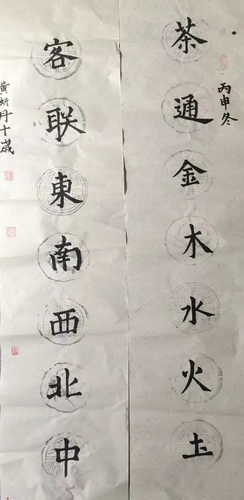 茶通金木水火土
丙申冬
客联東南西北中
黄妍丹十歲